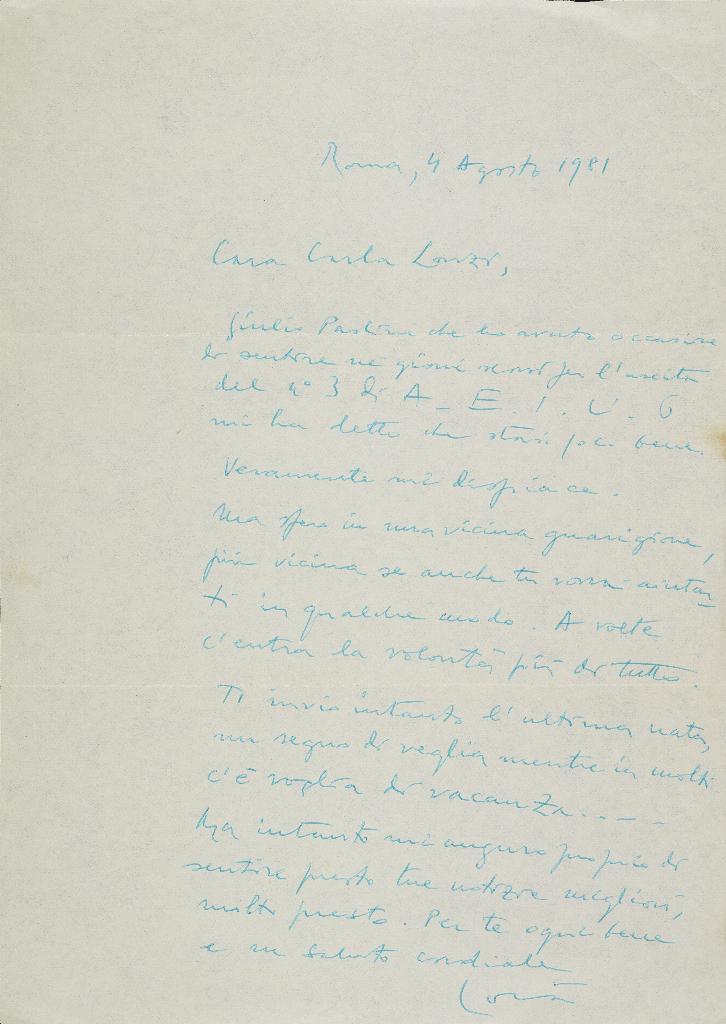 Roma, 4 Agosto 1981
Cara Carla Lonzi,
Giulia Pastori che ho avuto occasione
di sentire nei giorni scorsi per l'uscita
del n° 3 di A. E. I. U. O
mi ha detto che stavi poco bene.
Veramente mi dispiace.
Ma spero in una vicina guarigione,
più vicina se anche tu vorrai aiutar
ti in qualche modo. A volte
c'entra la volontà più di tutto.
Ti invio intanto l'ultima nata,
un segno di veglia mentre in molti
c'è voglia di vacanza....
Ma intanto mi auguro proprio di
sentire presto tue notizie migliori,
molto presto. Per te ogni bene
e un saluto cordiale